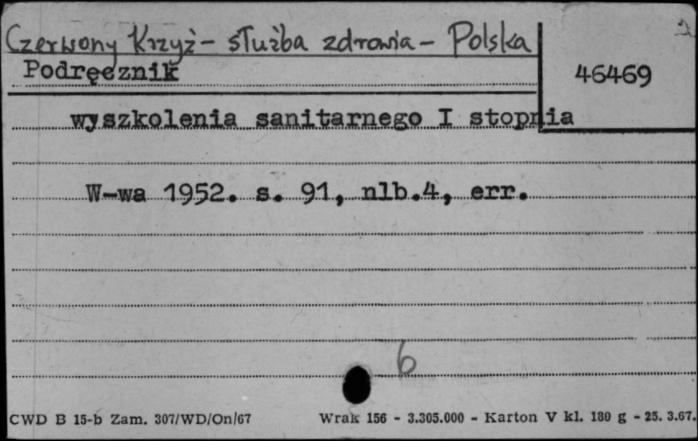 Czerwony Krzyż - służba zdrowia - Polska
Podręcznik
46469
wyszkolenia sanitarnego I stopnia
W-wa 1952. s. 91, nlb.4, err.
6
CWD B 15-b Zam. 307/WD/On/67 Wrak 156 - 3.305.000 - Karton V kl. 180 g - 25. 3.67.